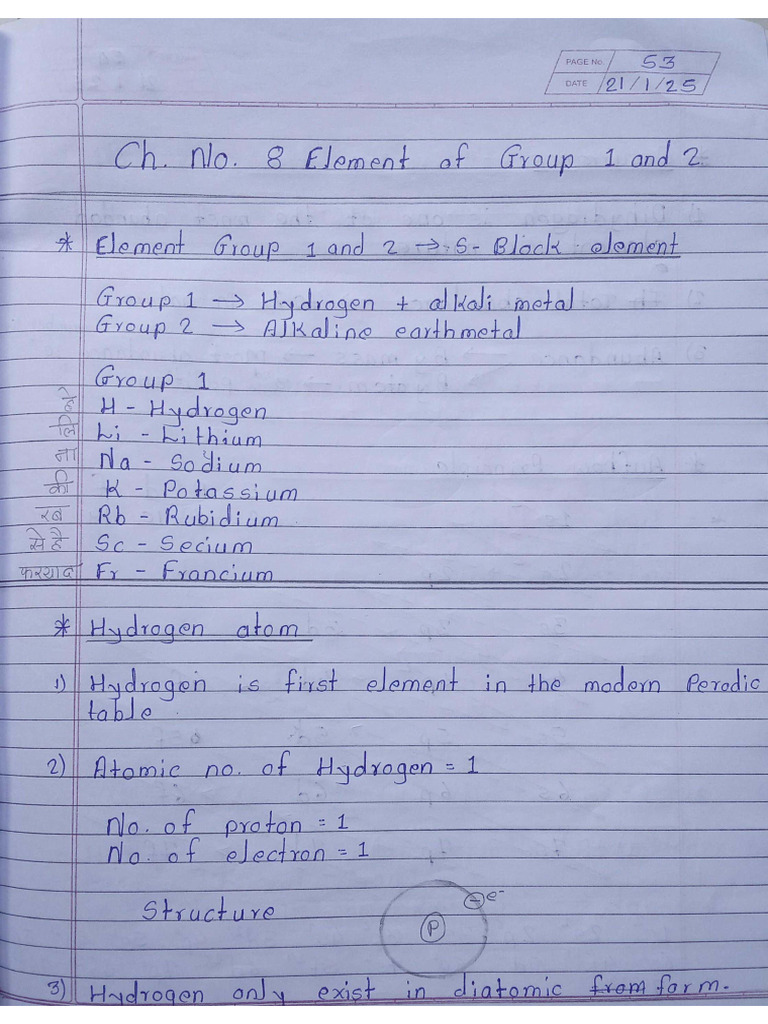 PAGE No. 53
DATE 21/1/25
Ch. No. 8 Element of Group 1 and 2
* Element Group 1 and 2 → S - Block element
Group 1 → Hydrogen + alkali metal
Group 2 → Alkaline earthmetal
Group 1
H - Hydrogen
Li - Lithium
Na - Sodium
K - Potassium
Rb - Rubidium
Sc - Secium
Fr - Francium
लि
ना
की
रब
से है
फरयाद
* Hydrogen atom
1) Hydrogen is first element in the modern Perodic
table.
2) Atomic no. of Hydrogen = 1
No. of proton = 1
No. of electron = 1
Structure
P
- e-
3) Hydrogen only exist in diatomic from form.